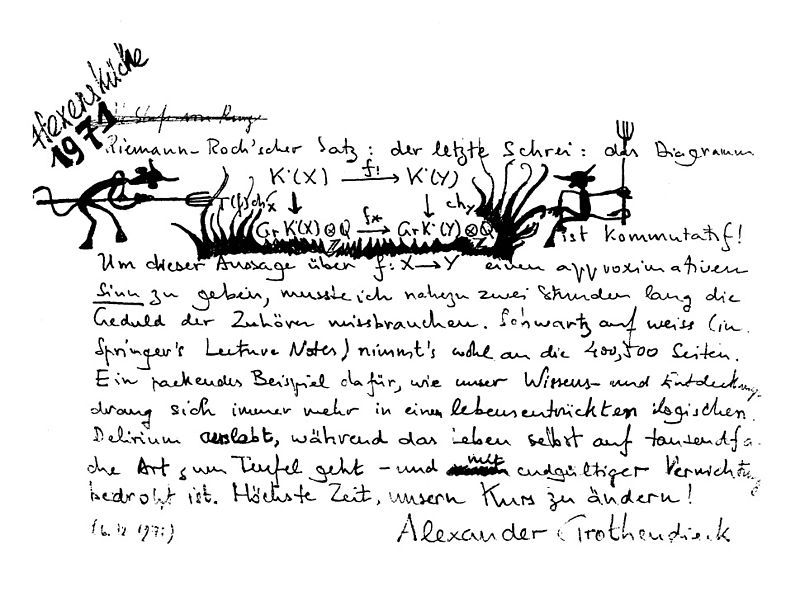 Hexenküche
1971
Riemann-Roch'scher Satz: der letzte Schrei: das Diagramm
K˙(X) f! K˙(Y)
ch_Y
Gr K˙(X)⊗Q f* Gr K˙(Y)⊗Q
ist kommutatif!
Um dieser Aussage über f: X → Y einen approximativen
Sinn zu geben, musste ich nahezu zwei Stunden lang die
Geduld der Zuhörer missbrauchen. Schwartz auf weiss (in
Springer's Lecture Notes) nimmt's wohl an die 400, 500 Seiten.
Ein packendes Beispiel dafür, wie unser Wissens- und Entdeckungs
drang sich immer mehr in einem lebensentrückten logischen
Delirium auslebt, während das Leben selbst auf tausendfa-
che Art zum Teufel geht - und mit endgültiger Vernichtung
bedroht ist. Höchste Zeit, unsern Kurs zu ändern!
Alexander Grothendieck